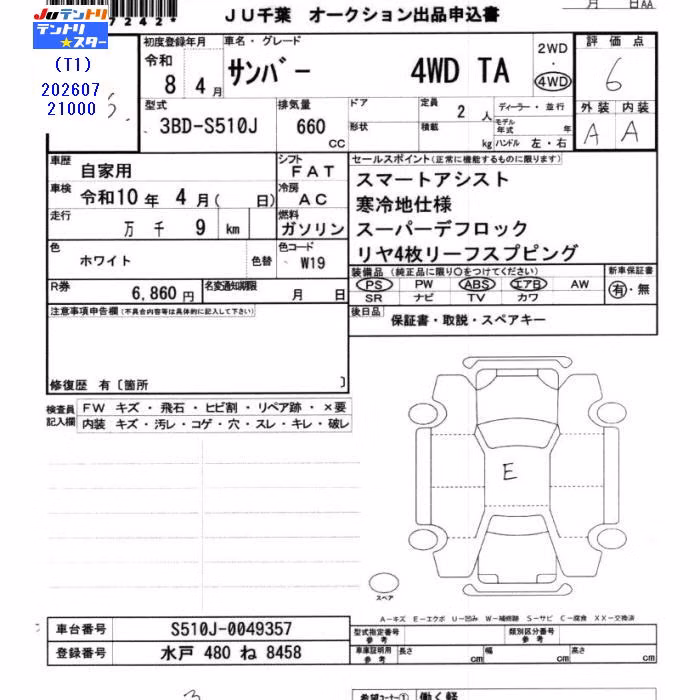 7242*
JU千葉 オークション出品申込書
月 日AA
JUテントリ
テントリ
JU★スター
(T1)
202607
21000
初度登録年月
令和
8 4月
車名・グレード
サンバー 4WD TA
2WD
・
4WD
評価点
6
型式
3BD-S510J
排気量
660
CC
ドア
形状
定員
2 人
積載
kg
ディーラー・並行
モデル年式 年
ハンドル 左・右
外装 内装
A A
車歴
自家用
シフト
FAT
車検
令和10年 4月( 日)
冷房
AC
走行
万 千 9 km
燃料
ガソリン
色
ホワイト
色替
色コード
W19
R券
6,860円
名変通知期限
月 日
セールスポイント(正常に機能するものに限ります)
スマートアシスト
寒冷地仕様
スーパーデフロック
リヤ4枚リーフスプピング
装備品(純正品に限り○をつけてください)
PS PW ABS エアB AW
SR ナビ TV カワ
新車保証書
有・無
後日品
保証書・取説・スペアキー
注意事項申告欄(不具合内容等は具体的に記入して下さい)
修復歴 有〔箇所 〕
検査員記入欄
FW キズ・飛石・ヒビ割・リペア跡・×要
内装 キズ・汚レ・コゲ・穴・スレ・キレ・破レ
E
スペア
A-キズ E-エクボ U-凹み W-補修跡 S-サビ C-腐食 XX-交換済
車台番号 S510J-0049357
登録番号 水戸 480 ね 8458
型式指定番号
参考
類別区分番号
参考
車庫証明用
参考
長さ cm 幅 cm 高さ cm
希望コーナー① 働く軽